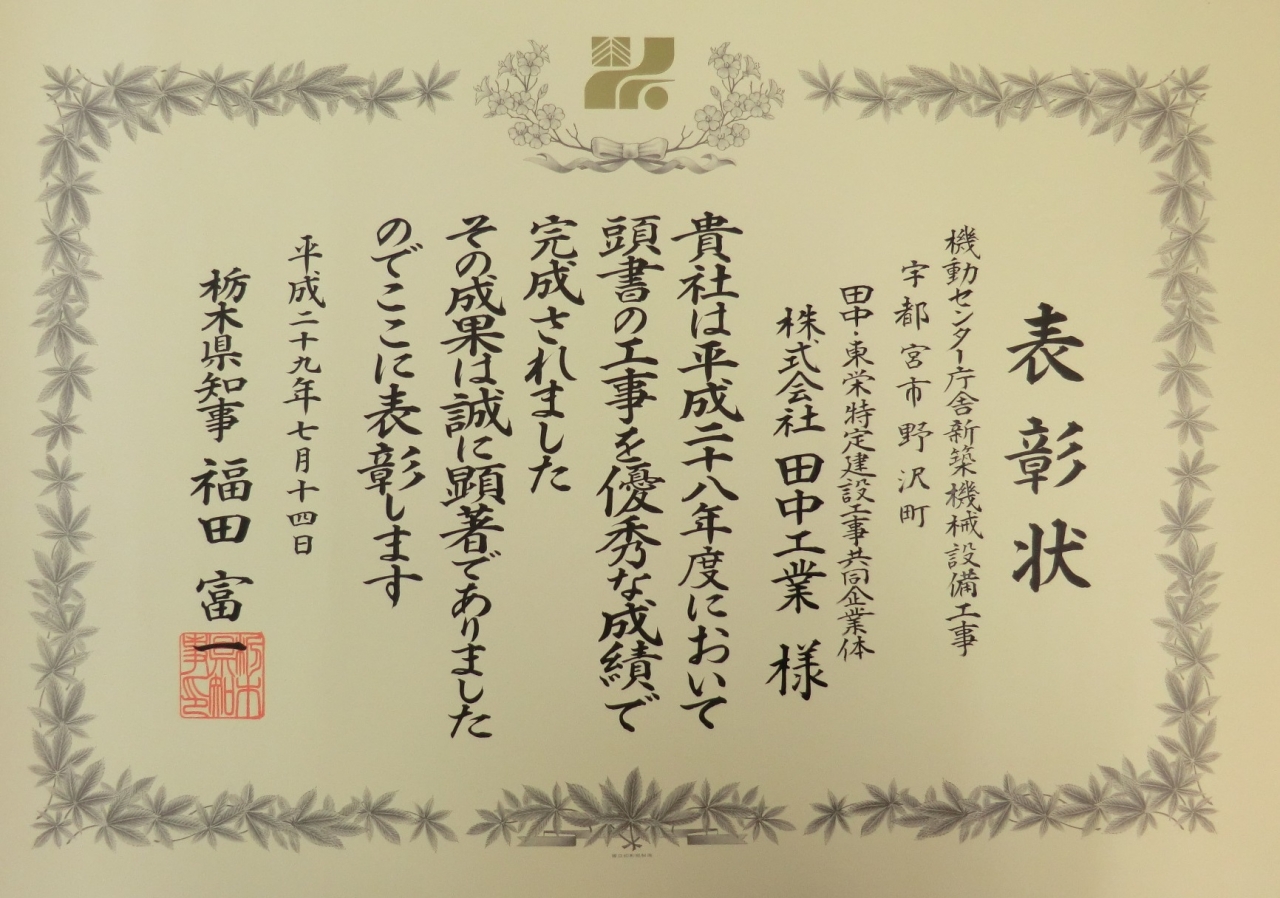 表彰状
機動センター庁舎新築機械設備工事
宇都宮市野沢町
田中・東栄特定建設工事共同企業体
株式会社 田中工業 様
貴社は平成二十八年度において
頭書の工事を優秀な成績で
完成されました
その成果は誠に顕著でありました
のでここに表彰します
平成二十九年七月十四日
栃木県知事 福田 富一
栃木県知事印